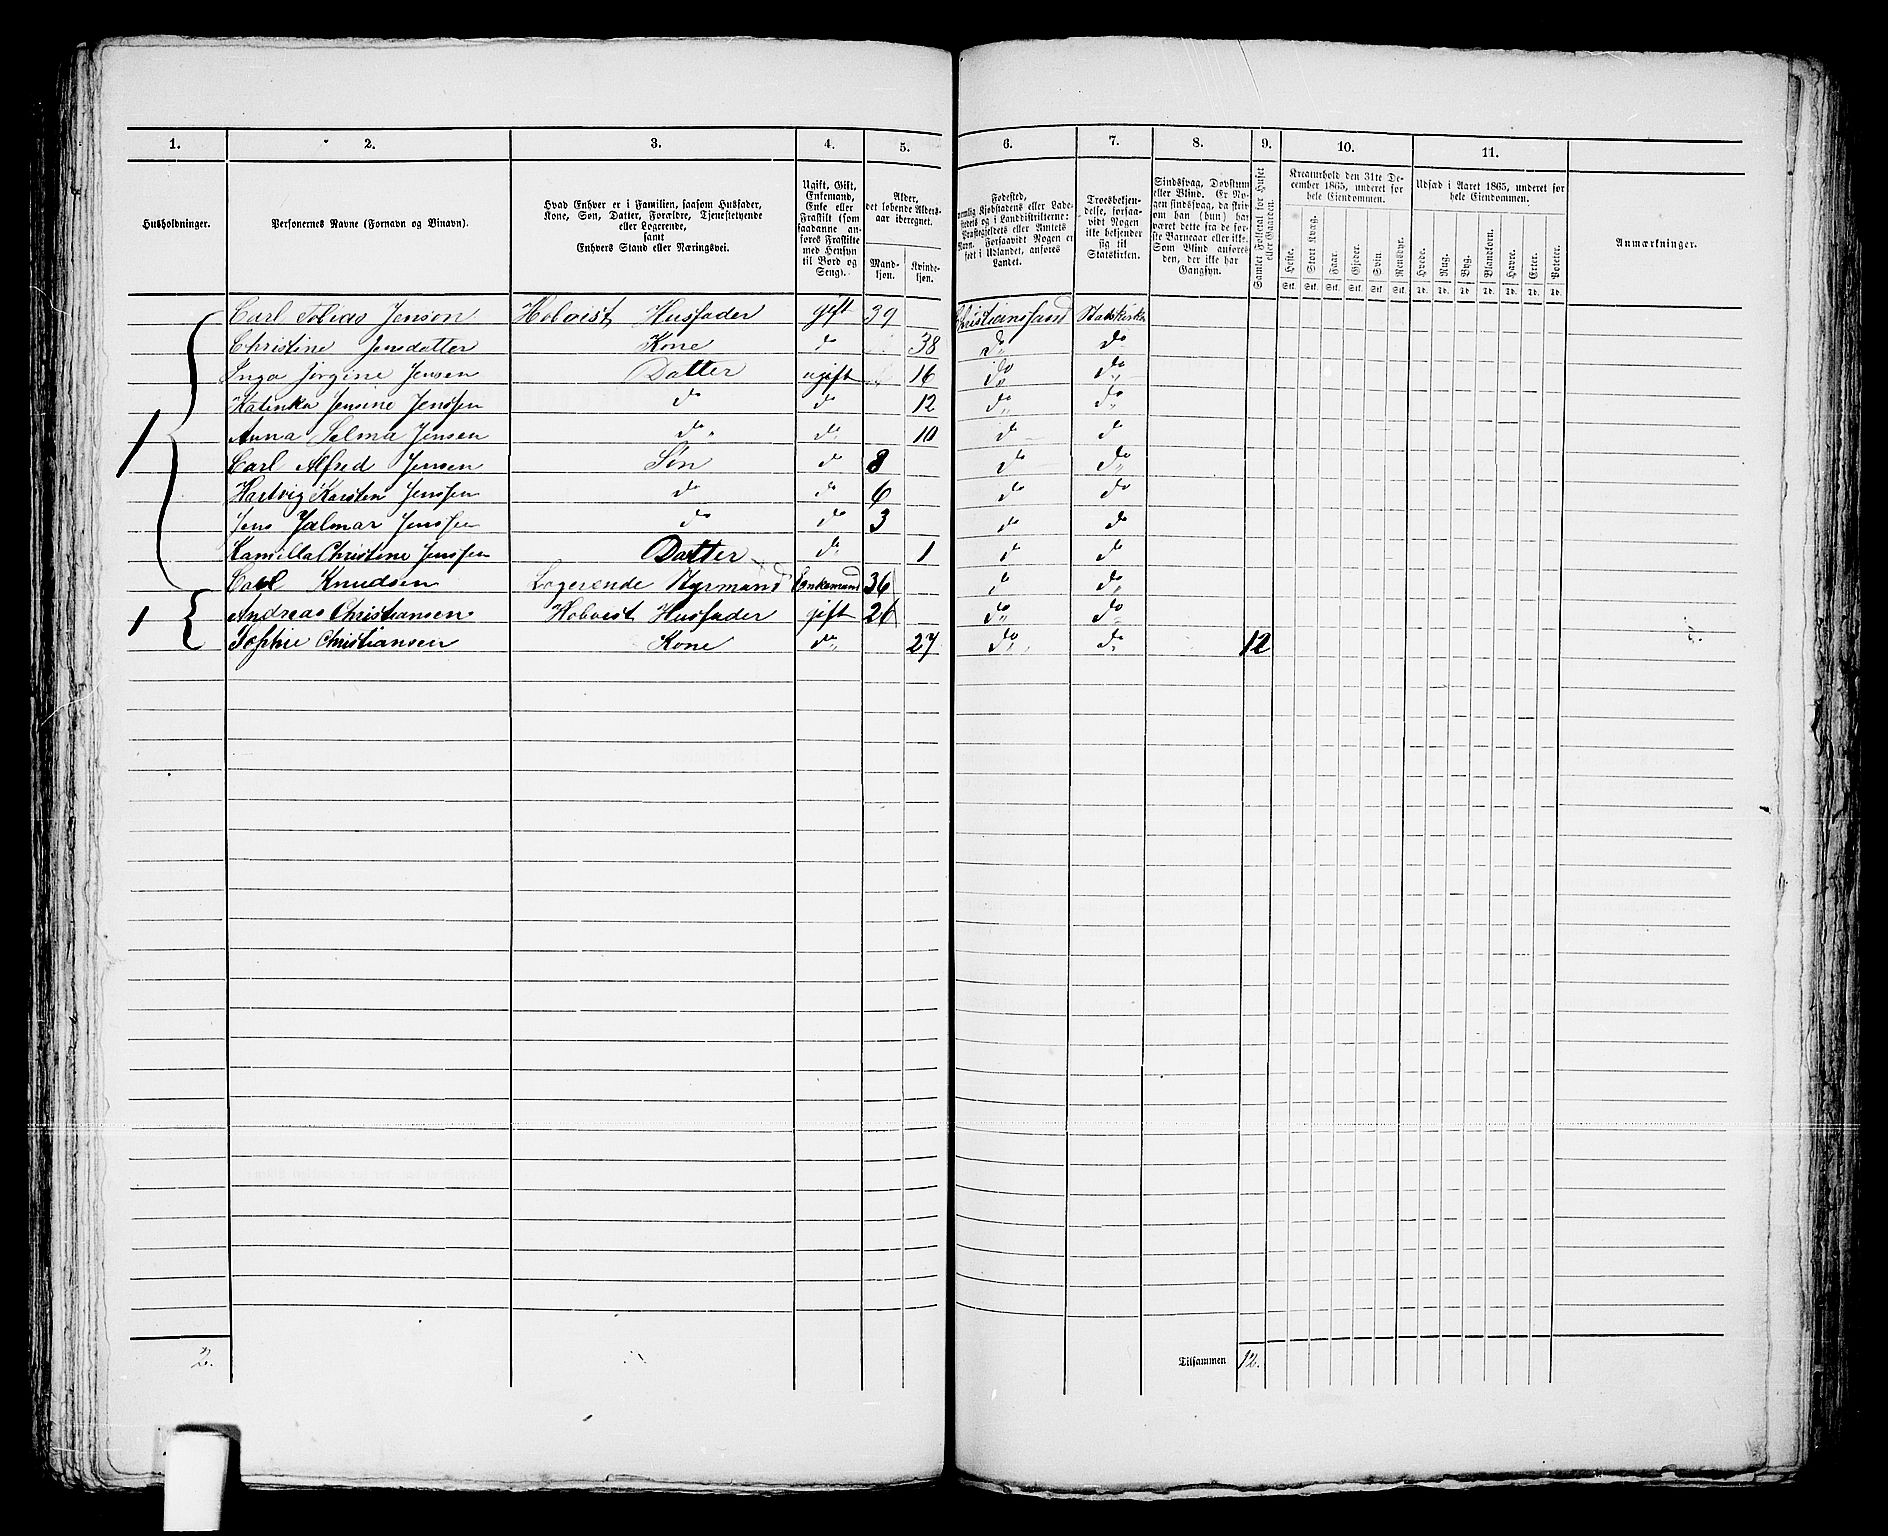 1. 2. 3. 4. 5. 6. 7. 8. 9. 10. 11.
Husholdninger.
Personernes Navne (Fornavn og Binavn).
Hvad Enhver er i Familien, saasom Husfader,
Kone, Søn, Datter, Forældre, Tjenestetyende
eller Logerende,
samt
Enhvers Stand eller Næringsvei.
Ugift, Gift,
Enkemand,
Enke eller
Fraskilt (som
saadanne an-
føres Fraskilte
med Hensyn
til Bord og
Seng).
Alder,
det løbende Alders-
aar iberegnet.
Mand-
kjøn.
Kvinde-
kjøn.
Fødested,
nemlig Kjøbstadens eller Lade-
stedets og i Landdistrikterne:
Præstegjeldets eller Amtets
Navn. Forsaavidt Nogen er
født i Udlandet, anføres
Landet.
Troesbekjen-
delse, forsaa-
vidt Nogen
ikke bekjender
sig til
Statskirken.
Sindssvag, Døvstum
eller Blind. Er No-
gen sindssvag, da skri-
om han (hun) har
været dette fra de før-
ste Barneaar eller ikke.
Som Blind anføres
den, der ikke har
Gangsyn.
Samlet Folketal for Huset
eller Gaarden.
Kreaturhold den 31te De-
cember 1865, underet for
hele Eiendommen.
Heste. Stort Kvæg. Faar. Gjeder. Svin. Rensdyr.
Stk. Stk. Stk. Stk. Stk. Stk.
Udsæd i Aaret 1865, underet for
hele Eiendommen.
Hvede. Rug. Byg. Blandkorn. Havre. Erter. Poteter.
Td. Td. Td. Td. Td. Td. Td.
Anmærkninger.
1 Carl Tobias Jenson Hoboist Husfader gift 39 Christianssand Statskirken
Christine Jensdatter Kone do 38 do do
Inga Jørgine Jensen Datter ugift 16 do do
Katinka Jensine Jenssen do do 12 do do
Anna Selma Jensen do do 10 do do
Carl Alfred Jensen Søn do 8 do do
Hartvig Karsten Jenssen do do 6 do do
Jens Jalmar Jenssen do do 3 do do
Kamilla Christine Jenssen Datter do 1 do do
Carl Knudsen Logerende Styrmand Enkemand 36 do do
1 Andreas Christiansen Hoboist Husfader gift 26 do do
Sophie Christiansen Kone do 27 do do 12
2. Tilsammen 12.